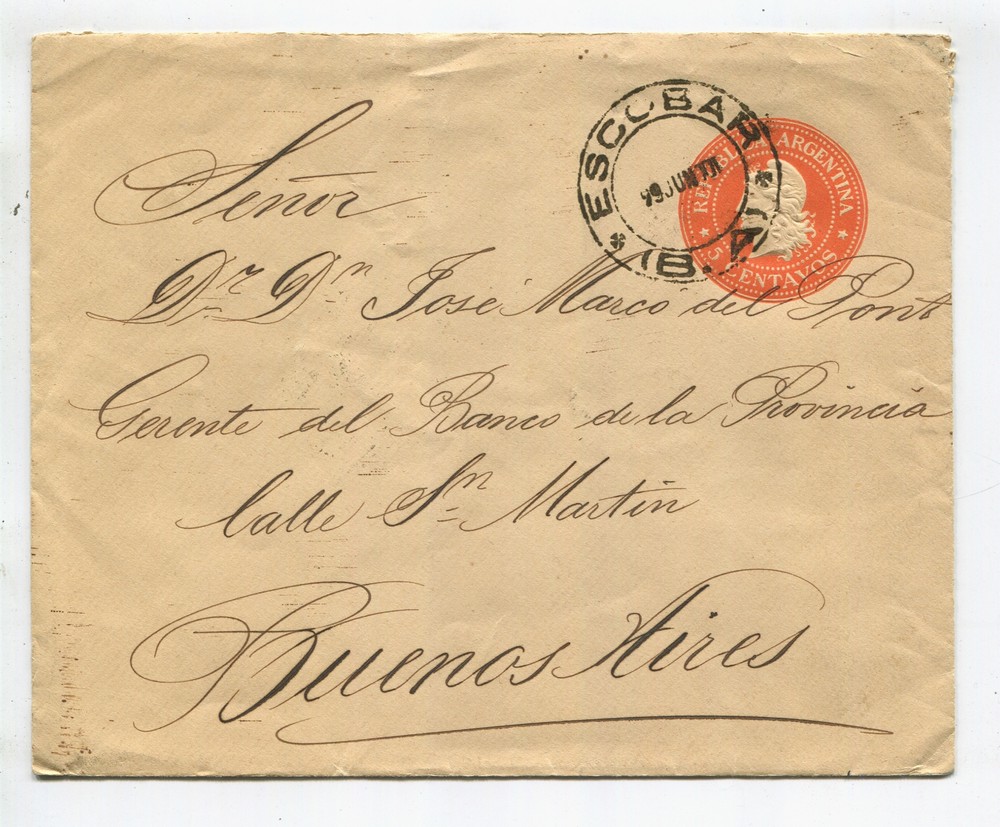 ESCOBAR
99 JUN
(B. A.)
REPUBLICA ARGENTINA
5 CENTAVOS
Señor
Dr. Dn. José Marcó del Pont
Gerente del Banco de la Provincia
Calle Sn. Martín
Buenos Aires